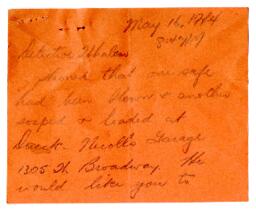 May 16, 1924
Detective Whalen
that one safe
had been blown & another
soaped & loaded at
Nicolls Garage
1305 W Broadway. He
would like you to